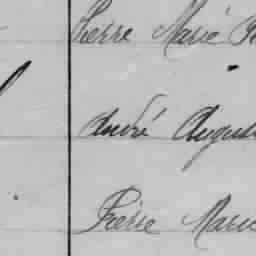 Pierre Marie
André August
Pierre Marie